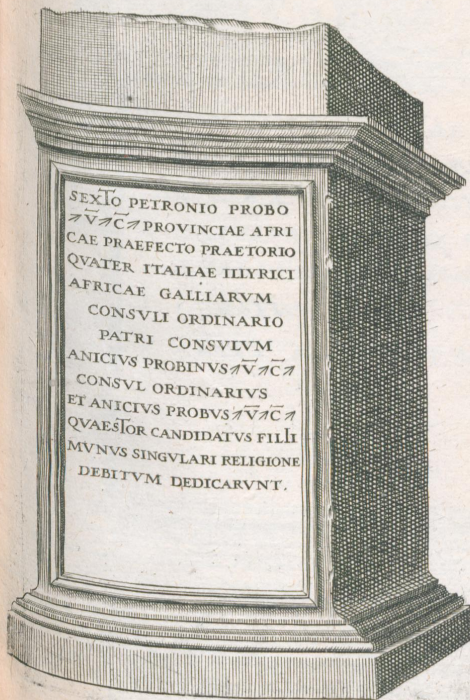 SEXTO PETRONIO PROBO
↗V̄↗C̄↗PROVINCIAE AFRI
CAE PRAEFECTO PRAETORIO
QVATER ITALIAE ILLYRICI
AFRICAE GALLIARVM
CONSVLI ORDINARIO
PATRI CONSVLVM
ANICIVS PROBINVS↗V̄↗C̄↗
CONSVL ORDINARIVS
ET ANICIVS PROBVS↗V̄↗C̄↗
QVAESTOR CANDIDATVS FILII
MVNVS SINGVLARI RELIGIONE
DEBITVM DEDICARVNT.